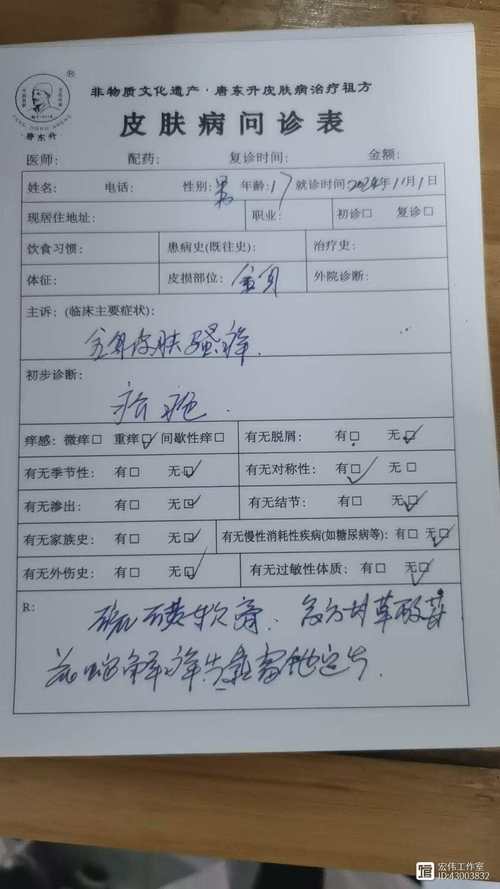 ®
唐东升
非物质文化遗产·唐东升皮肤病治疗祖方
皮肤病问诊表
医师: 配药: 复诊时间: 金额:
姓名: 电话: 性别: 男 年龄: 17 就诊时间 2024年11月1日
现居住地址: 职业: 初诊□ 复诊□
饮食习惯: 患病史(既往史): 治疗史:
体征: 皮损部位: 全身 外院诊断:
主诉: (临床主要症状)
全身皮肤骚痒.
初步诊断:
疥疮.
痒感: 微痒□ 重痒☑ 间歇性痒□ 有无脱屑: 有□ 无☑
有无季节性: 有□ 无☑ 有无对称性: 有☑ 无□
有无渗出: 有□ 无☑ 有无结节: 有□ 无☑
有无家族史: 有□ 无☑ 有无慢性消耗性疾病(如糖尿病等): 有□ 无☑
有无外伤史: 有□ 无☑ 有无过敏性体质: 有□ 无☑
R: 硫磺软膏、复方甘草酸苷
氯雷他定片.
宏伟工作室
ID:43003832